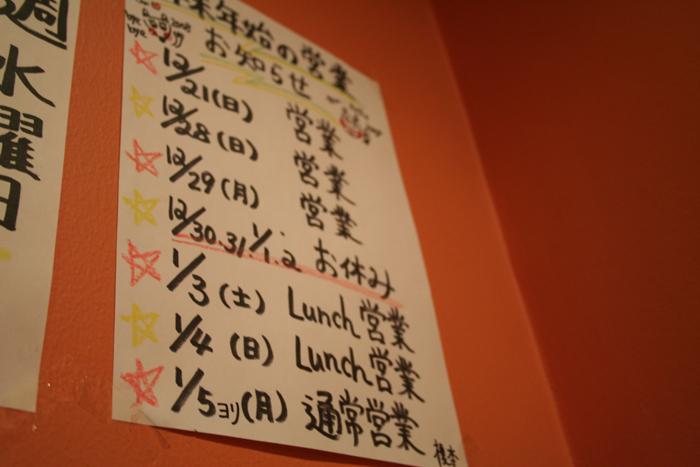 週
水
曜
日
末年始の営業
お知らせ
12/21(日) 営業
12/28(日) 営業
12/29(月) 営業
12/30.31.1/1.2 お休み
1/3(土) Lunch営業
1/4(日) Lunch営業
1/5ヨリ(月) 通常営業